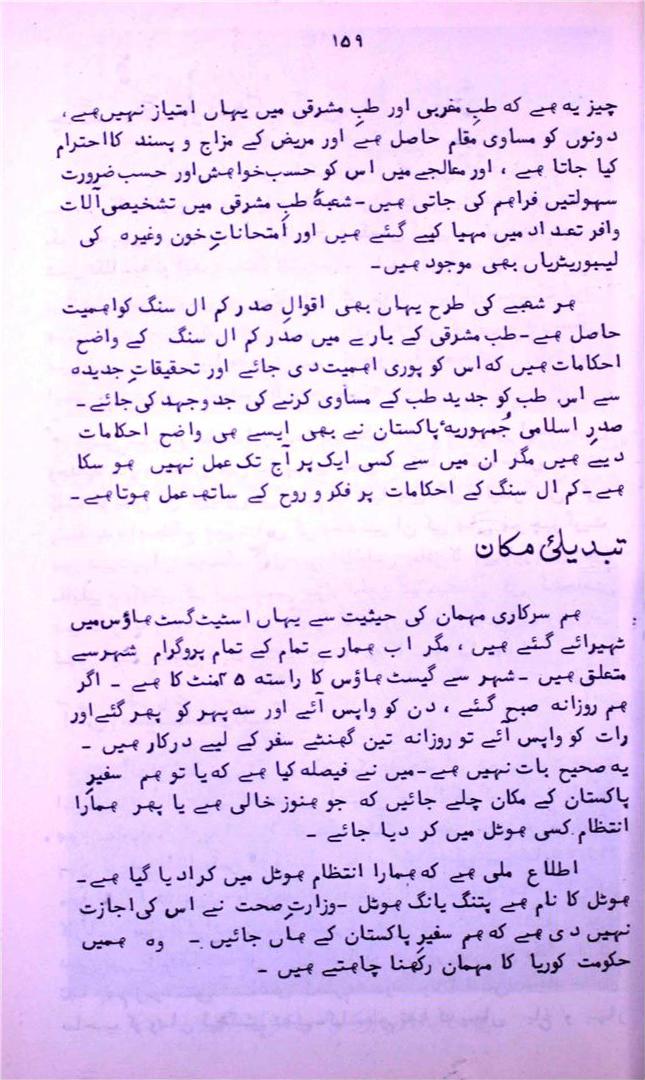 ۱۵۹
چیز یہ ہے کہ طبِ مغربی اور طبِ مشرقی میں یہاں امتیاز نہیں ہے،
دونوں کو مساوی مقام حاصل ہے اور مریض کے مزاج و پسند کا احترام
کیا جاتا ہے، اور معالجے میں اس کو حسب خواہش اور حسب ضرورت
سہولتیں فراہم کی جاتی ہیں۔ شعبۂ طبِ مشرقی میں تشخیصی آلات
وافر تعداد میں مہیا کیے گئے ہیں اور امتحاناتِ خون وغیرہ کی
لیبوریٹریاں بھی موجود ہیں۔
ہر شعبے کی طرح یہاں بھی اقوالِ صدر کم ال سنگ کو اہمیت
حاصل ہے۔ طب مشرقی کے بارے میں صدر کم ال سنگ کے واضح
احکامات ہیں کہ اس کو پوری اہمیت دی جائے اور تحقیقاتِ جدیدہ
سے اس طب کو جدید طب کے مساوی کرنے کی جدوجہد کی جائے۔
صدرِ اسلامی جُمہوریۂ پاکستان نے بھی ایسے ہی واضح احکامات
دیے ہیں مگر ان میں سے کسی ایک پر آج تک عمل نہیں ہو سکا
ہے۔ کم ال سنگ کے احکامات پر فکر و روح کے ساتھ عمل ہوتا ہے۔
تبدیلیٔ مکان
ہم سرکاری مہمان کی حیثیت سے یہاں اسٹیٹ گسٹ ہاؤس میں
ٹھیرائے گئے ہیں، مگر اب ہمارے تمام کے تمام پروگرام شہر سے
متعلق ہیں۔ شہر سے گیسٹ ہاؤس کا راستہ ۴۵ منٹ کا ہے۔ اگر
ہم روزانہ صبح گئے، دن کو واپس آئے اور سہ پہر کو پھر گئے اور
رات کو واپس آئے تو روزانہ تین گھنٹے سفر کے لیے درکار ہیں۔
یہ صحیح بات نہیں ہے۔ میں نے فیصلہ کیا ہے کہ یا تو ہم سفیرِ
پاکستان کے مکان چلے جائیں کہ جو ہنوز خالی ہے یا پھر ہمارا
انتظام کسی ہوٹل میں کر دیا جائے۔
اطلاع ملی ہے کہ ہمارا انتظام ہوٹل میں کرا دیا گیا ہے۔
ہوٹل کا نام ہے پتنگ یانگ ہوٹل۔ وزارتِ صحت نے اس کی اجازت
نہیں دی ہے کہ ہم سفیرِ پاکستان کے ہاں جائیں۔ وہ ہمیں
حکومت کوریا کا مہمان رکھنا چاہتے ہیں۔